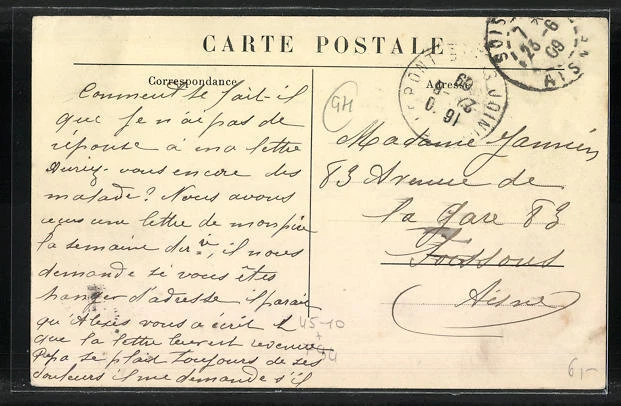 CARTE POSTALE
Correspondance
Comment se fait-il
que je n'ai pas de
réponse à ma lettre
Auriez-vous encore des
malade? Nous avons
reçus une lettre de mon père
la semaine der re, il nous
demande si vous êtes
changer d'adresse il parait
qu'Alexis vous a écrit et
que la lettre leur est revenue
Papa se plait toujours de ses
douleurs il me demande s'il
Adresse
Madame Jannin
83 Avenue de
la Gare 83
Soissons
Aisne
94
45-10
+94
6,-
PONT JOIN
16 0
22 -6
09
SOIS
7 *
23 -6
09
AISNE